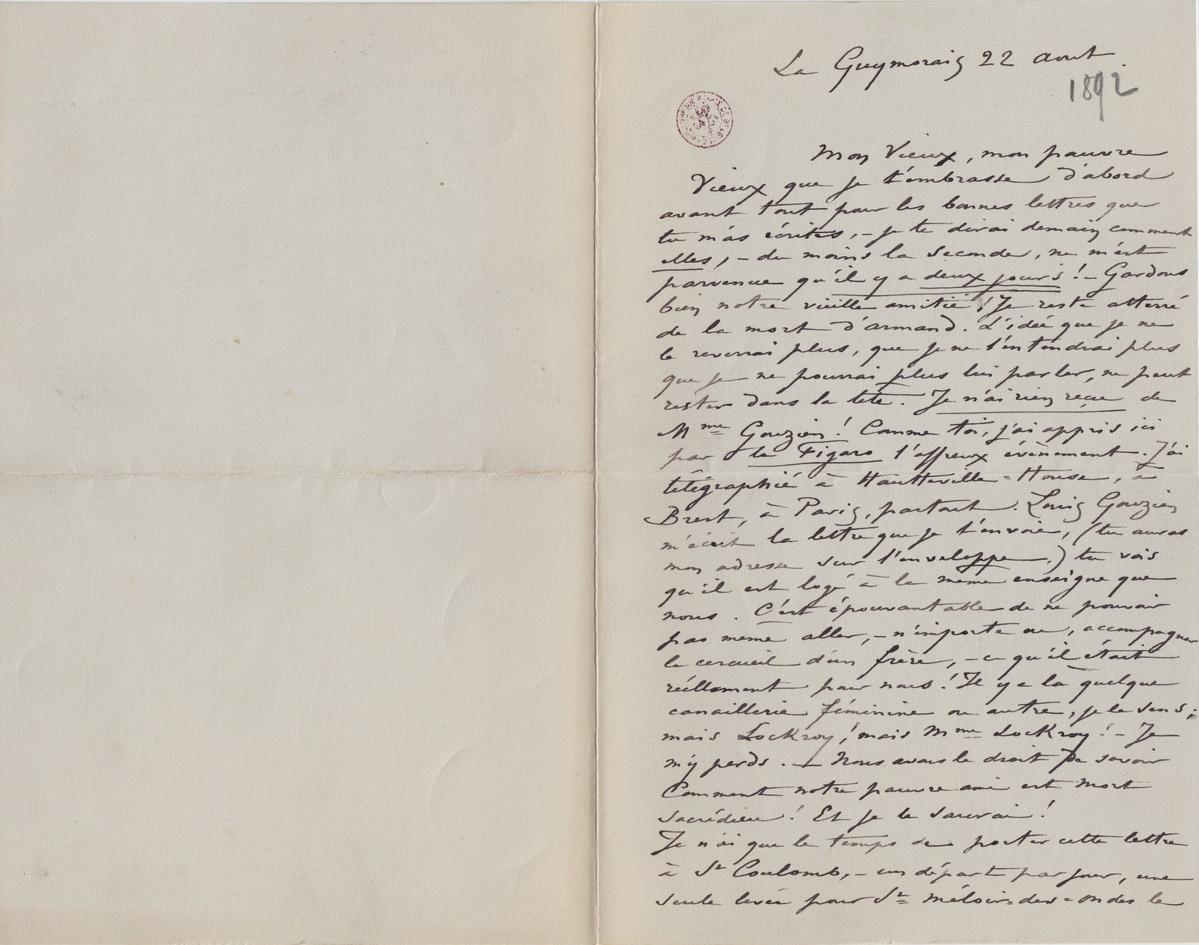 La Guymorais 22 aout.
1892
Mon Vieux, mon pauvre
Vieux que je t'embrasse d'abord
avant tout pour les bonnes lettres que
tu m'as écrites, - je te dirai demain comment
elles, - du moins la seconde, ne m'est
parvenue qu'il y a deux jours ! - Gardons
bien notre vieille amitié ! Je reste atterré
de la mort d'armand. L'idée que je ne
le reverrai plus, que je ne l'entendrai plus
que je ne pourrai plus lui parler, ne peut
rester dans la tête. Je n'ai rien reçu de
Mme Gouzien ! Comme toi, j'ai appris ici
par le Figaro l'affreux évènement. J'ai
télégraphié à Hautteville-House, à
Brest, à Paris, partout. Louis Gouzien
m'écrit la lettre que je t'envoie, (tu auras
mon adresse sur l'enveloppe.) tu vois
qu'il est logé à la même enseigne que
nous. C'est épouvantable de ne pouvoir
pas meme aller, - n'importe ou, accompagner
le cercueil d'un frère, - ce qu'il était
réellement pour nous ! Il y a là quelque
canaillerie féminine ou autre, je le sens ;
mais Lockroy ! mais Mme Lockroy ! - Je
m'y perds. - Nous avons le droit de savoir
Comment notre pauvre ami est mort
sacrédieu ! Et je le saurai !
Je n'ai que le temps de porter cette lettre
à St Coulomb, - un départ par jour, une
seule levée pour St méloir-des-ondes le